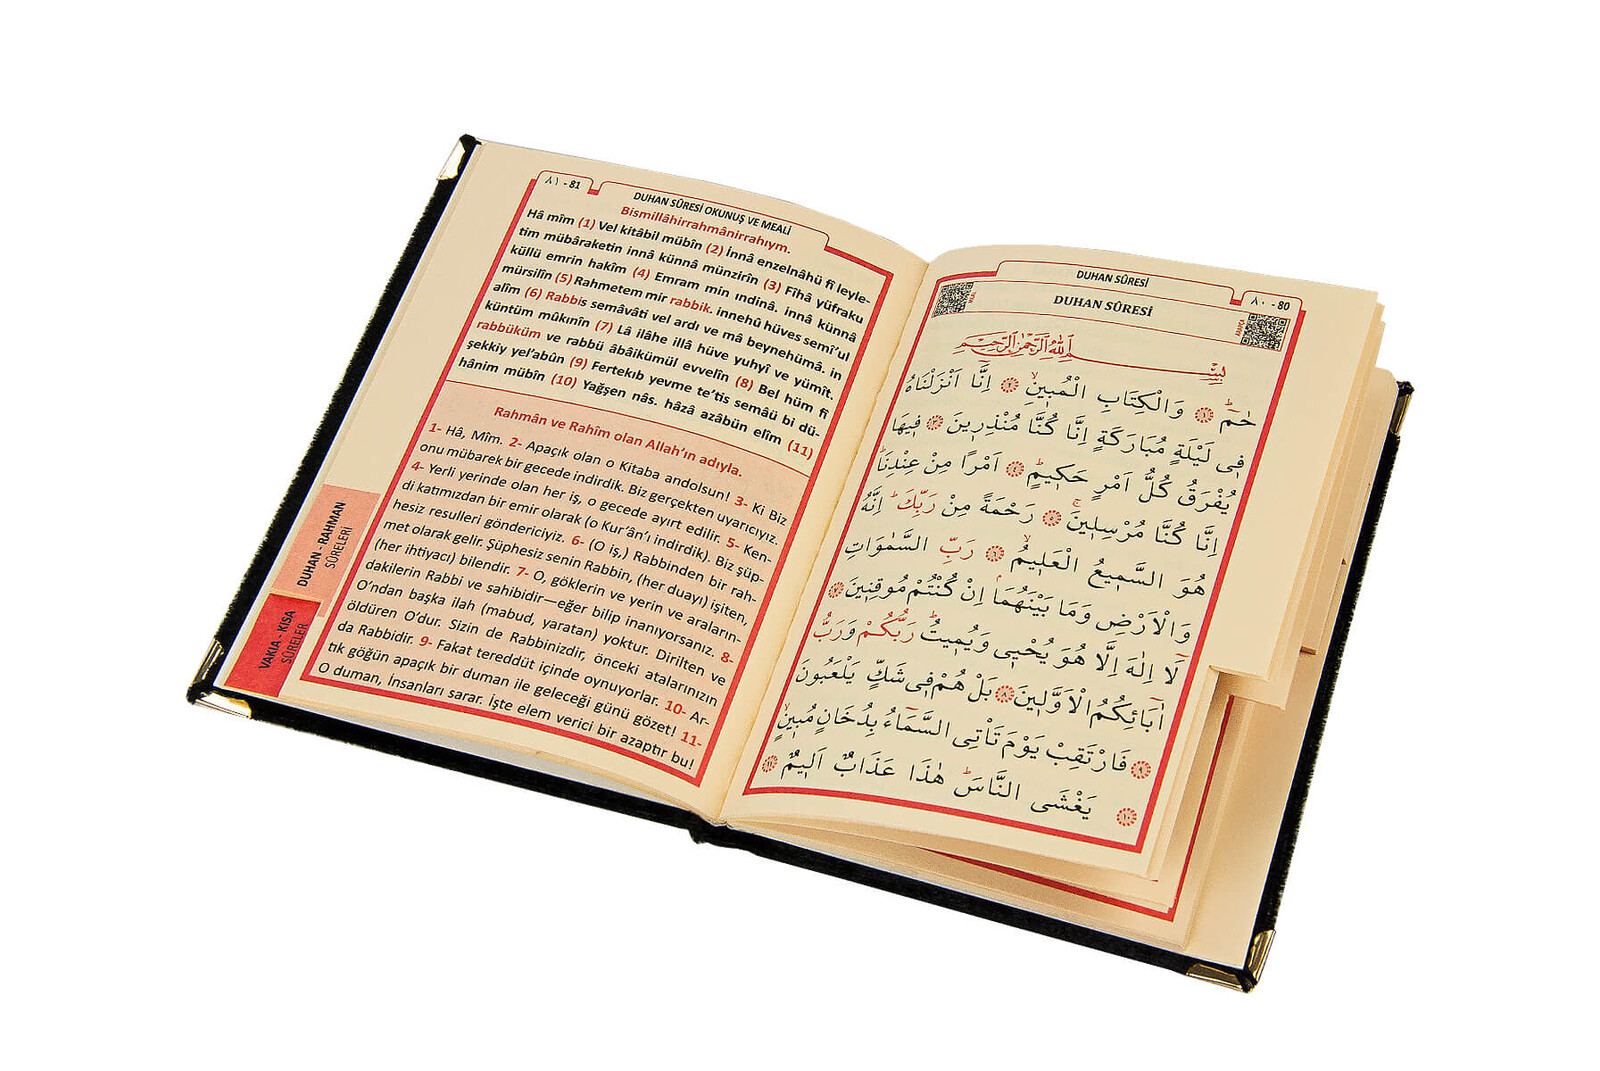 ٨١ - 81
DUHAN SÛRESİ OKUNUŞ VE MEALİ
Bismillâhirrahmânirrahıym.
Hâ mîm (1) Vel kitâbil mübîn (2) İnnâ enzelnâhü fî leyle-
tim mübâraketin innâ künnâ münzirîn (3) Fîhâ yüfraku
küllü emrin hakîm (4) Emram min ındinâ. innâ künnâ
mürsilîn (5) Rahmetem mir rabbik. innehû hüves semî'ul
alîm (6) Rabbis semâvâti vel ardı ve mâ beynehümâ. in
küntüm mûkınîn (7) Lâ ilâhe illâ hüve yuhyî ve yümît.
rabbüküm ve rabbü âbâikümül evvelîn (8) Bel hüm fî
şekkiy yel'abûn (9) Fertekıb yevme te'tîs semâü bi dü-
hânim mübîn (10) Yağşen nâs. hâzâ azâbün elîm (11)
Rahmân ve Rahîm olan Allah'ın adıyla.
1- Hâ, Mîm. 2- Apaçık olan o Kitaba andolsun! 3- Ki Biz
onu mübarek bir gecede indirdik. Biz gerçekten uyarıcıyız.
4- Yerli yerinde olan her iş, o gecede ayırt edilir. 5- Ken-
di katımızdan bir emir olarak (o Kur'ân'ı indirdik). Biz şüp-
hesiz resulleri göndericiyiz. 6- (O iş,) Rabbinden bir rah-
met olarak gelir. Şüphesiz senin Rabbin, (her duayı) işiten,
(her ihtiyacı) bilendir. 7- O, göklerin ve yerin ve araların-
dakilerin Rabbi ve sahibidir—eğer bilip inanıyorsanız. 8-
O'ndan başka ilah (mabud, yaratan) yoktur. Dirilten ve
öldüren O'dur. Sizin de Rabbinizdir, önceki atalarınızın
da Rabbidir. 9- Fakat tereddüt içinde oynuyorlar. 10- Ar-
tık göğün apaçık bir duman ile geleceği günü gözet! 11-
O duman, İnsanları sarar. İşte elem verici bir azaptır bu!
DUHAN - RAHMAN
SÛRELERİ
VAKIA - KISA
SÛRELER
DUHAN SÛRESİ
٨٠ - 80
MEAL
DUHAN SÛRESİ
ARAPÇA
بِسْمِ اللّٰهِ الرَّحْمٰنِ الرَّحِيمِ
حٰمٓ ۚ ﴿١﴾ وَالْكِتَابِ الْمُبِينِ ۙ ﴿٢﴾ اِنَّٓا اَنْزَلْنَاهُ
فِي لَيْلَةٍ مُبَارَكَةٍ اِنَّا كُنَّا مُنْذِرِينَ ﴿٣﴾ فِيهَا
يُفْرَقُ كُلُّ اَمْرٍ حَكِيمٍ ۙ ﴿٤﴾ اَمْرًا مِنْ عِنْدِنَاۜ
اِنَّا كُنَّا مُرْسِلِينَ ۚ ﴿٥﴾ رَحْمَةً مِنْ رَبِّكَۜ اِنَّهُ
هُوَ السَّمِيعُ الْعَلِيمُ ۙ ﴿٦﴾ رَبِّ السَّمٰوَاتِ
وَالْاَرْضِ وَمَا بَيْنَهُمَاۢ اِنْ كُنْتُمْ مُوقِنِينَ ﴿٧﴾
لَٓا اِلٰهَ اِلَّا هُوَ يُحْيِي وَيُمِيتُۜ رَبُّكُمْ وَرَبُّ
اٰبَٓائِكُمُ الْاَوَّلِينَ ﴿٨﴾ بَلْ هُمْ فِي شَكٍّ يَلْعَبُونَ
﴿٩﴾ فَارْتَقِبْ يَوْمَ تَأْتِي السَّمَٓاءُ بِدُخَانٍ مُبِينٍ ۙ
﴿١٠﴾ يَغْشَى النَّاسَۜ هٰذَا عَذَابٌ اَلِيمٌ ﴿١١﴾